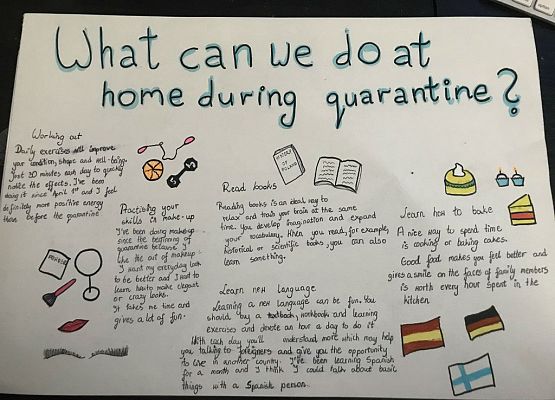 What can we do at
home during quarantine?
Working out
Daily exercises will improve
your condition, shape and well-being.
Just 20 minutes each day to quickly
notice the effects. I've been
doing it since April 1st and I feel
definitely more positive energy
than before the quarantine
Practising your
skills in make-up
I've been doing make-up
since the beginning of
quarantine because I
like the art of makeup.
I want my everyday look
to be better and I want to
learn how to make elegant
or crazy looks.
It takes me time and
gives a lot of fun.
HISTORY
OF
POLAND
Read books
Reading books is an ideal way to
relax and train your brain at the same
time. You develop imagination and expand
your vocabulary. When you read, for example,
historical or scientific books, you can also
learn something.
Learn new language
Learning a new language can be fun. You
should buy a textbook, workbook and learning
exercises and devote an hour a day to do it
With each day you'll understand more which may help
you talking to foreigners and give you the opportunity
to live in another country. I've been learning Spanish
for a month and I think I could talk about basic
things with a Spanish person.
Learn how to bake
A nice way to spend time
is cooking or baking cakes.
Good food makes you feel better and
gives a smile on the faces of family members
is worth every hour spent in the
kitchen.